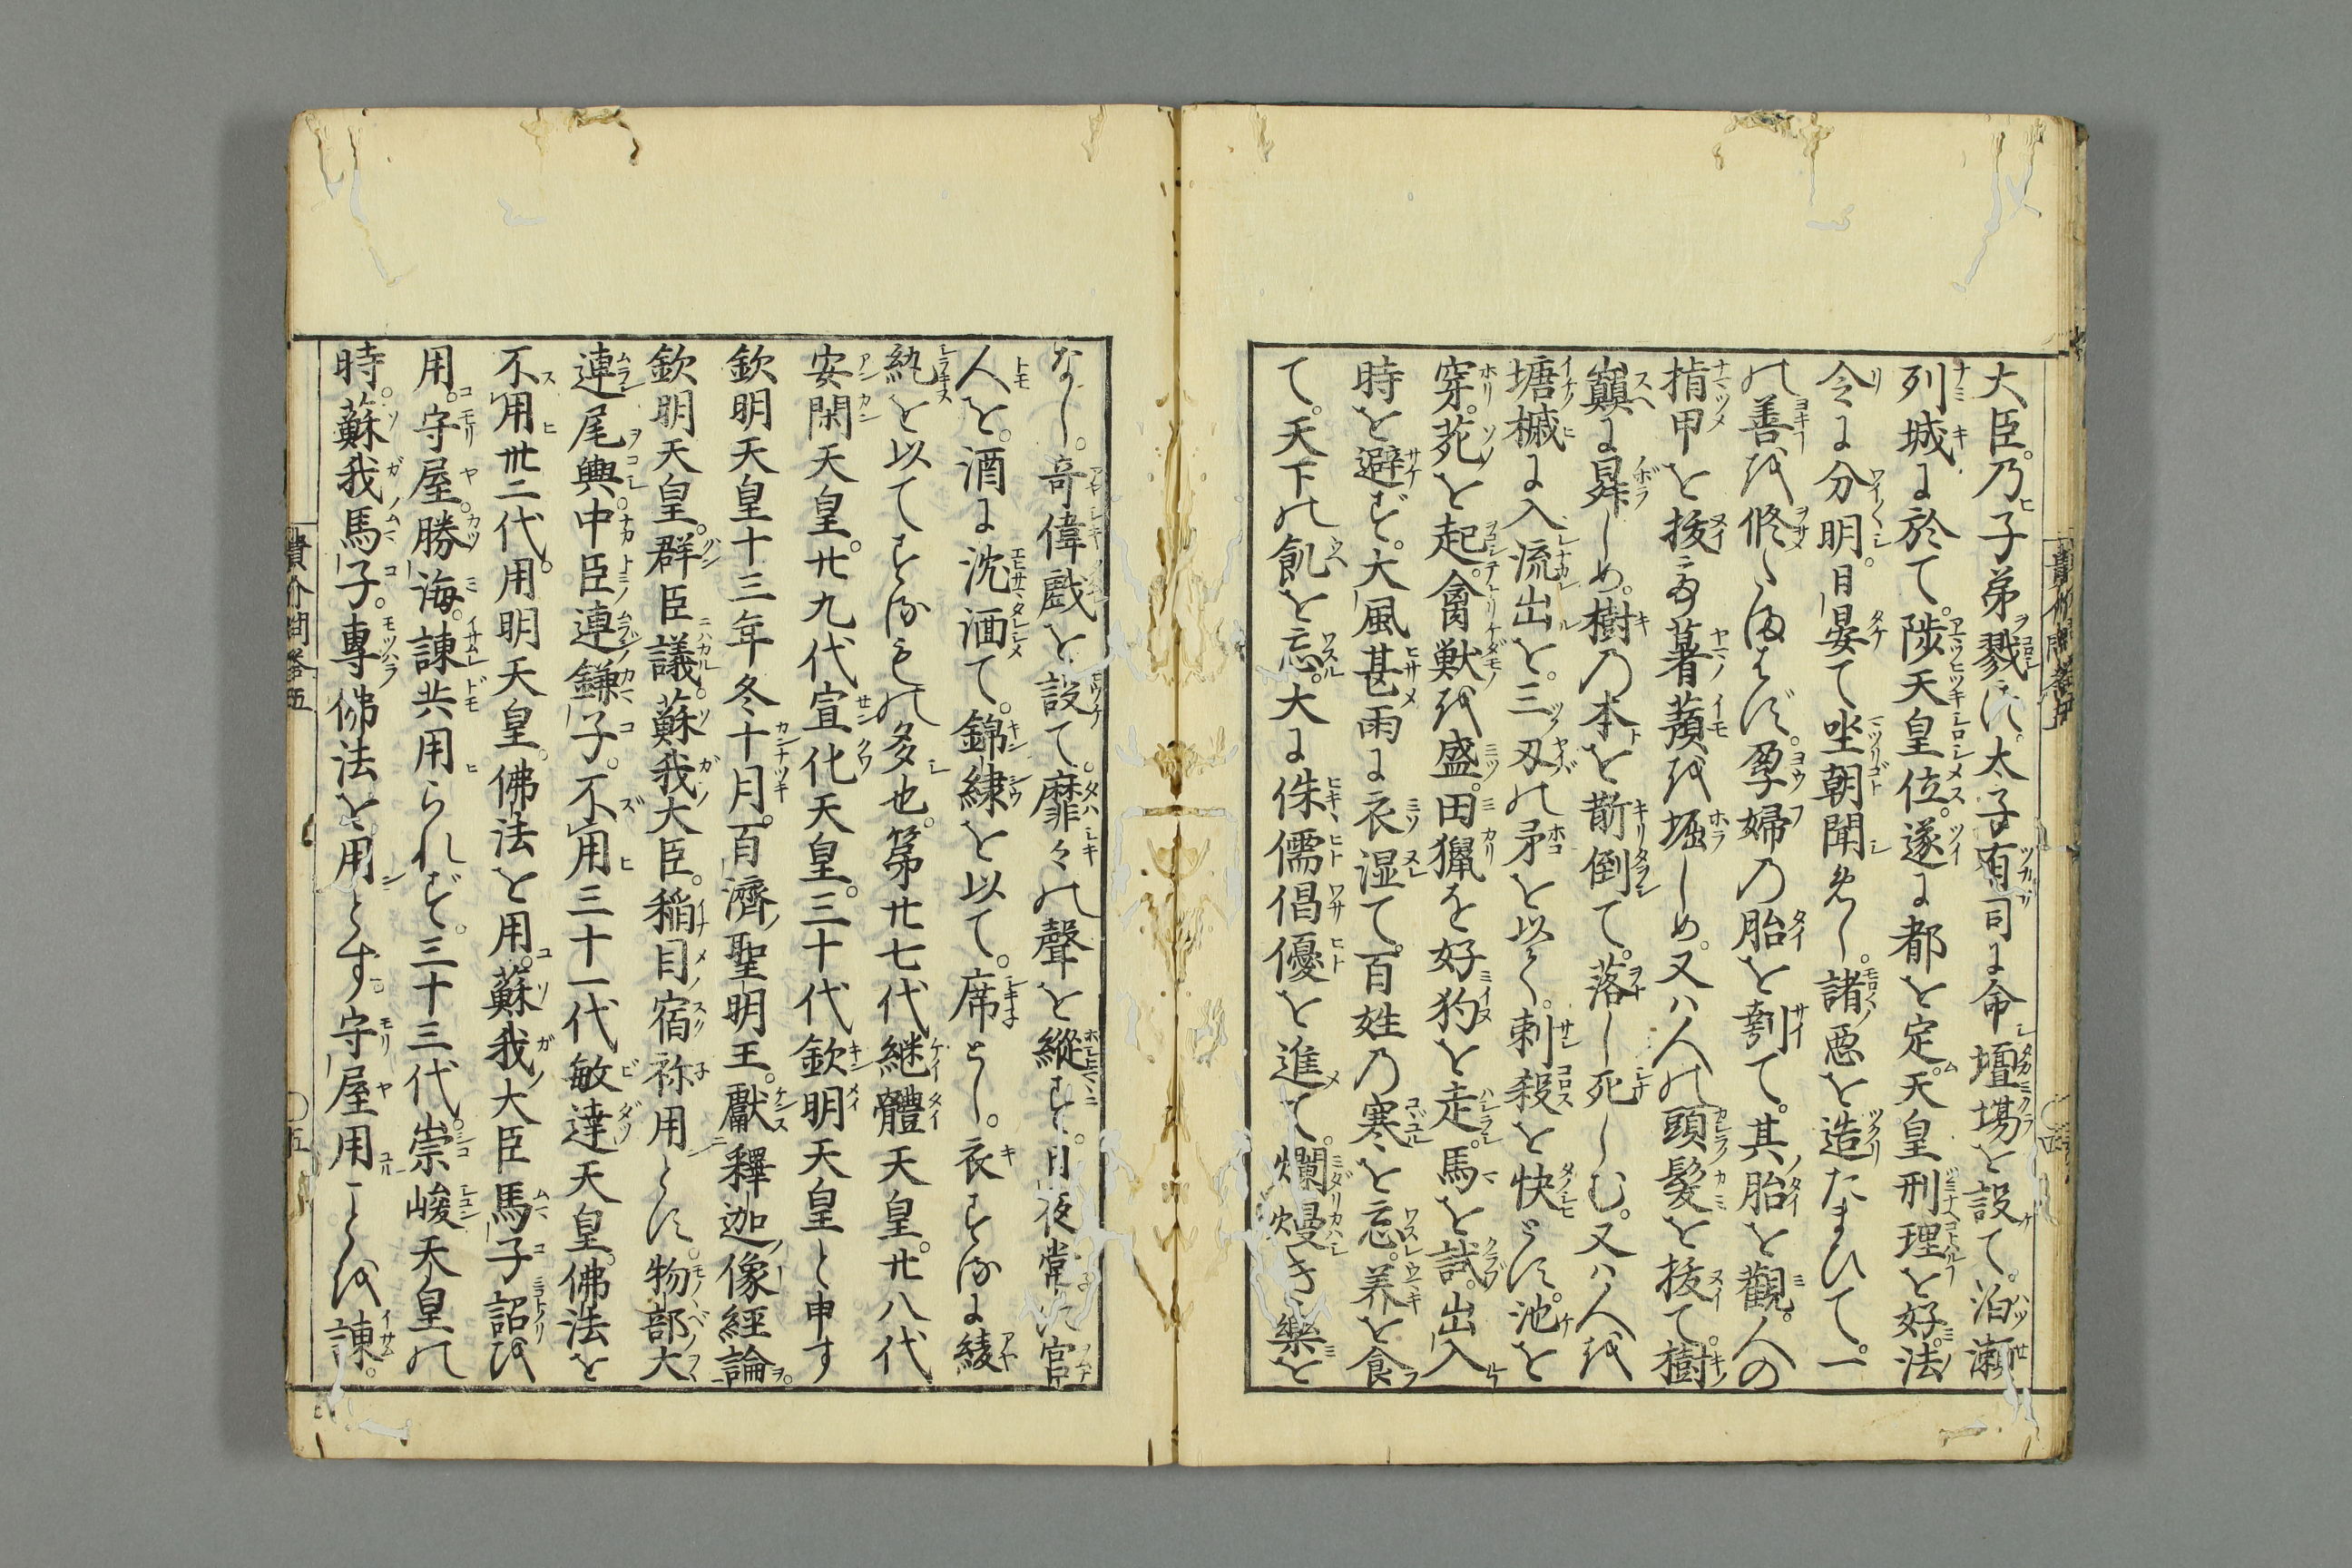 大臣。乃子弟戮す。太子有司に命壇場を設て。泊瀬
列城に於て。陟天皇位。遂に都を定。天皇刑理を好。法
令に分明。日晏て坐朝聞めし。諸悪を造たまひて。一
の善を修したまはず。孕婦の胎を刳て。其胎を観。人の
指甲を抜て暑蕷を堀しめ。又ハ人の頭髪を抜て。樹
巓に昇しめ。樹の本を斮倒て。落し死しむ。又ハ人を
塘楲に入流出を。三刃の矛を以て。刺殺を快とす。池を
穿。苑を起。禽獣を盛。田猟を好狗を走。馬を試。出入
時を避ず。大風甚雨に衣湿て。百姓の寒を忘。養を食
て。天下の飢を忘。大に侏儒倡優を進て。爛熳き楽を
なし。奇偉戯を設て。靡々の聲を縦す。日夜常に官
人を。酒に沈湎て。錦繍を以て。席とし。衣するに綾
紈を以てするもの多也。第廿七代継體天皇。廿八代
安閑天皇。廿九代宣化天皇。三十代欽明天皇と申す
欽明天皇十三年冬十月。百濟聖明王。獻釋迦像経論
欽明天皇。群臣議。蘇我大臣。稲目宿祢用とす。物部大
連尾興。中臣連鎌子。不用三十一代敏達天皇。佛法を
不用卅二代。用明天皇。佛法を用。蘇我大臣馬子詔を
用。守屋。勝海。諌共用られず。三十三代。崇峻天皇の
時。蘇我馬子。専佛法を用とす。守屋用ことを諌。